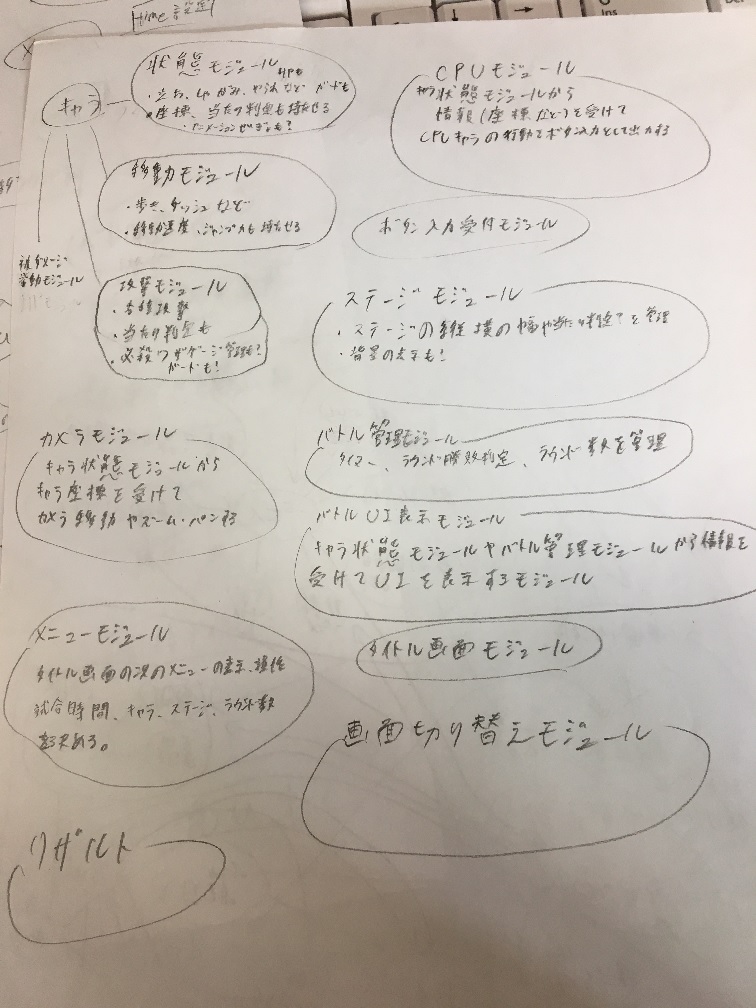 Ins
Home設定
キャラ
状態モジュール
HPも
・立ち、しゃがみ、やられなど ガードも
・座標、当たり判定も持たせる
・アニメーションぜんぶも?
移動モジュール
・歩き、ダッシュなど
・移動速度、ジャンプ力も持たせる
被ダメージ
挙動モジュール
攻撃モジュール
・各種攻撃
・当たり判定も
・必殺ワザゲージ管理も?
ガードも!
CPUモジュール
キャラ状態モジュールから
情報(座標など)を受けて
CPUキャラの行動をボタン入力として出力する
ボタン入力受付モジュール
ステージモジュール
・ステージの縦横の幅や当たり判定?を管理
・背景の表示も!
カメラモジュール
キャラ状態モジュールから
キャラ座標を受けて
カメラ移動やズーム・パンする
バトル管理モジュール
タイマー、ラウンド勝敗判定、ラウンド数を管理
バトルUI表示モジュール
キャラ状態モジュールやバトル管理モジュールから情報を
受けてUIを表示するモジュール
メニューモジュール
タイトル画面の次のメニューの表示、操作
試合時間、キャラ、ステージ、ラウンド数
を決める。
タイトル画面モジュール
画面切り替えモジュール
リザルト